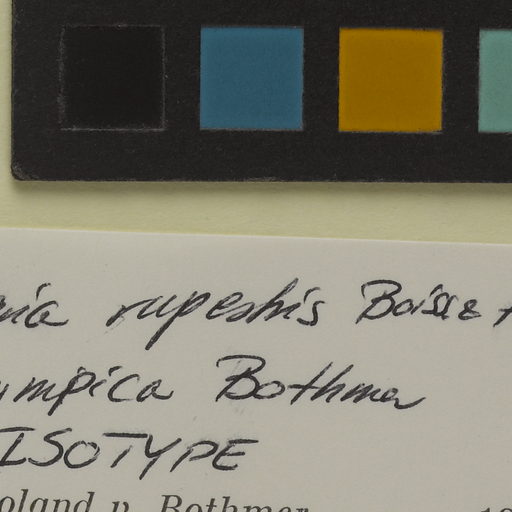 ria rupestris Boiss &
ympica Bothmer
ISOTYPE
oland v. Bothmer